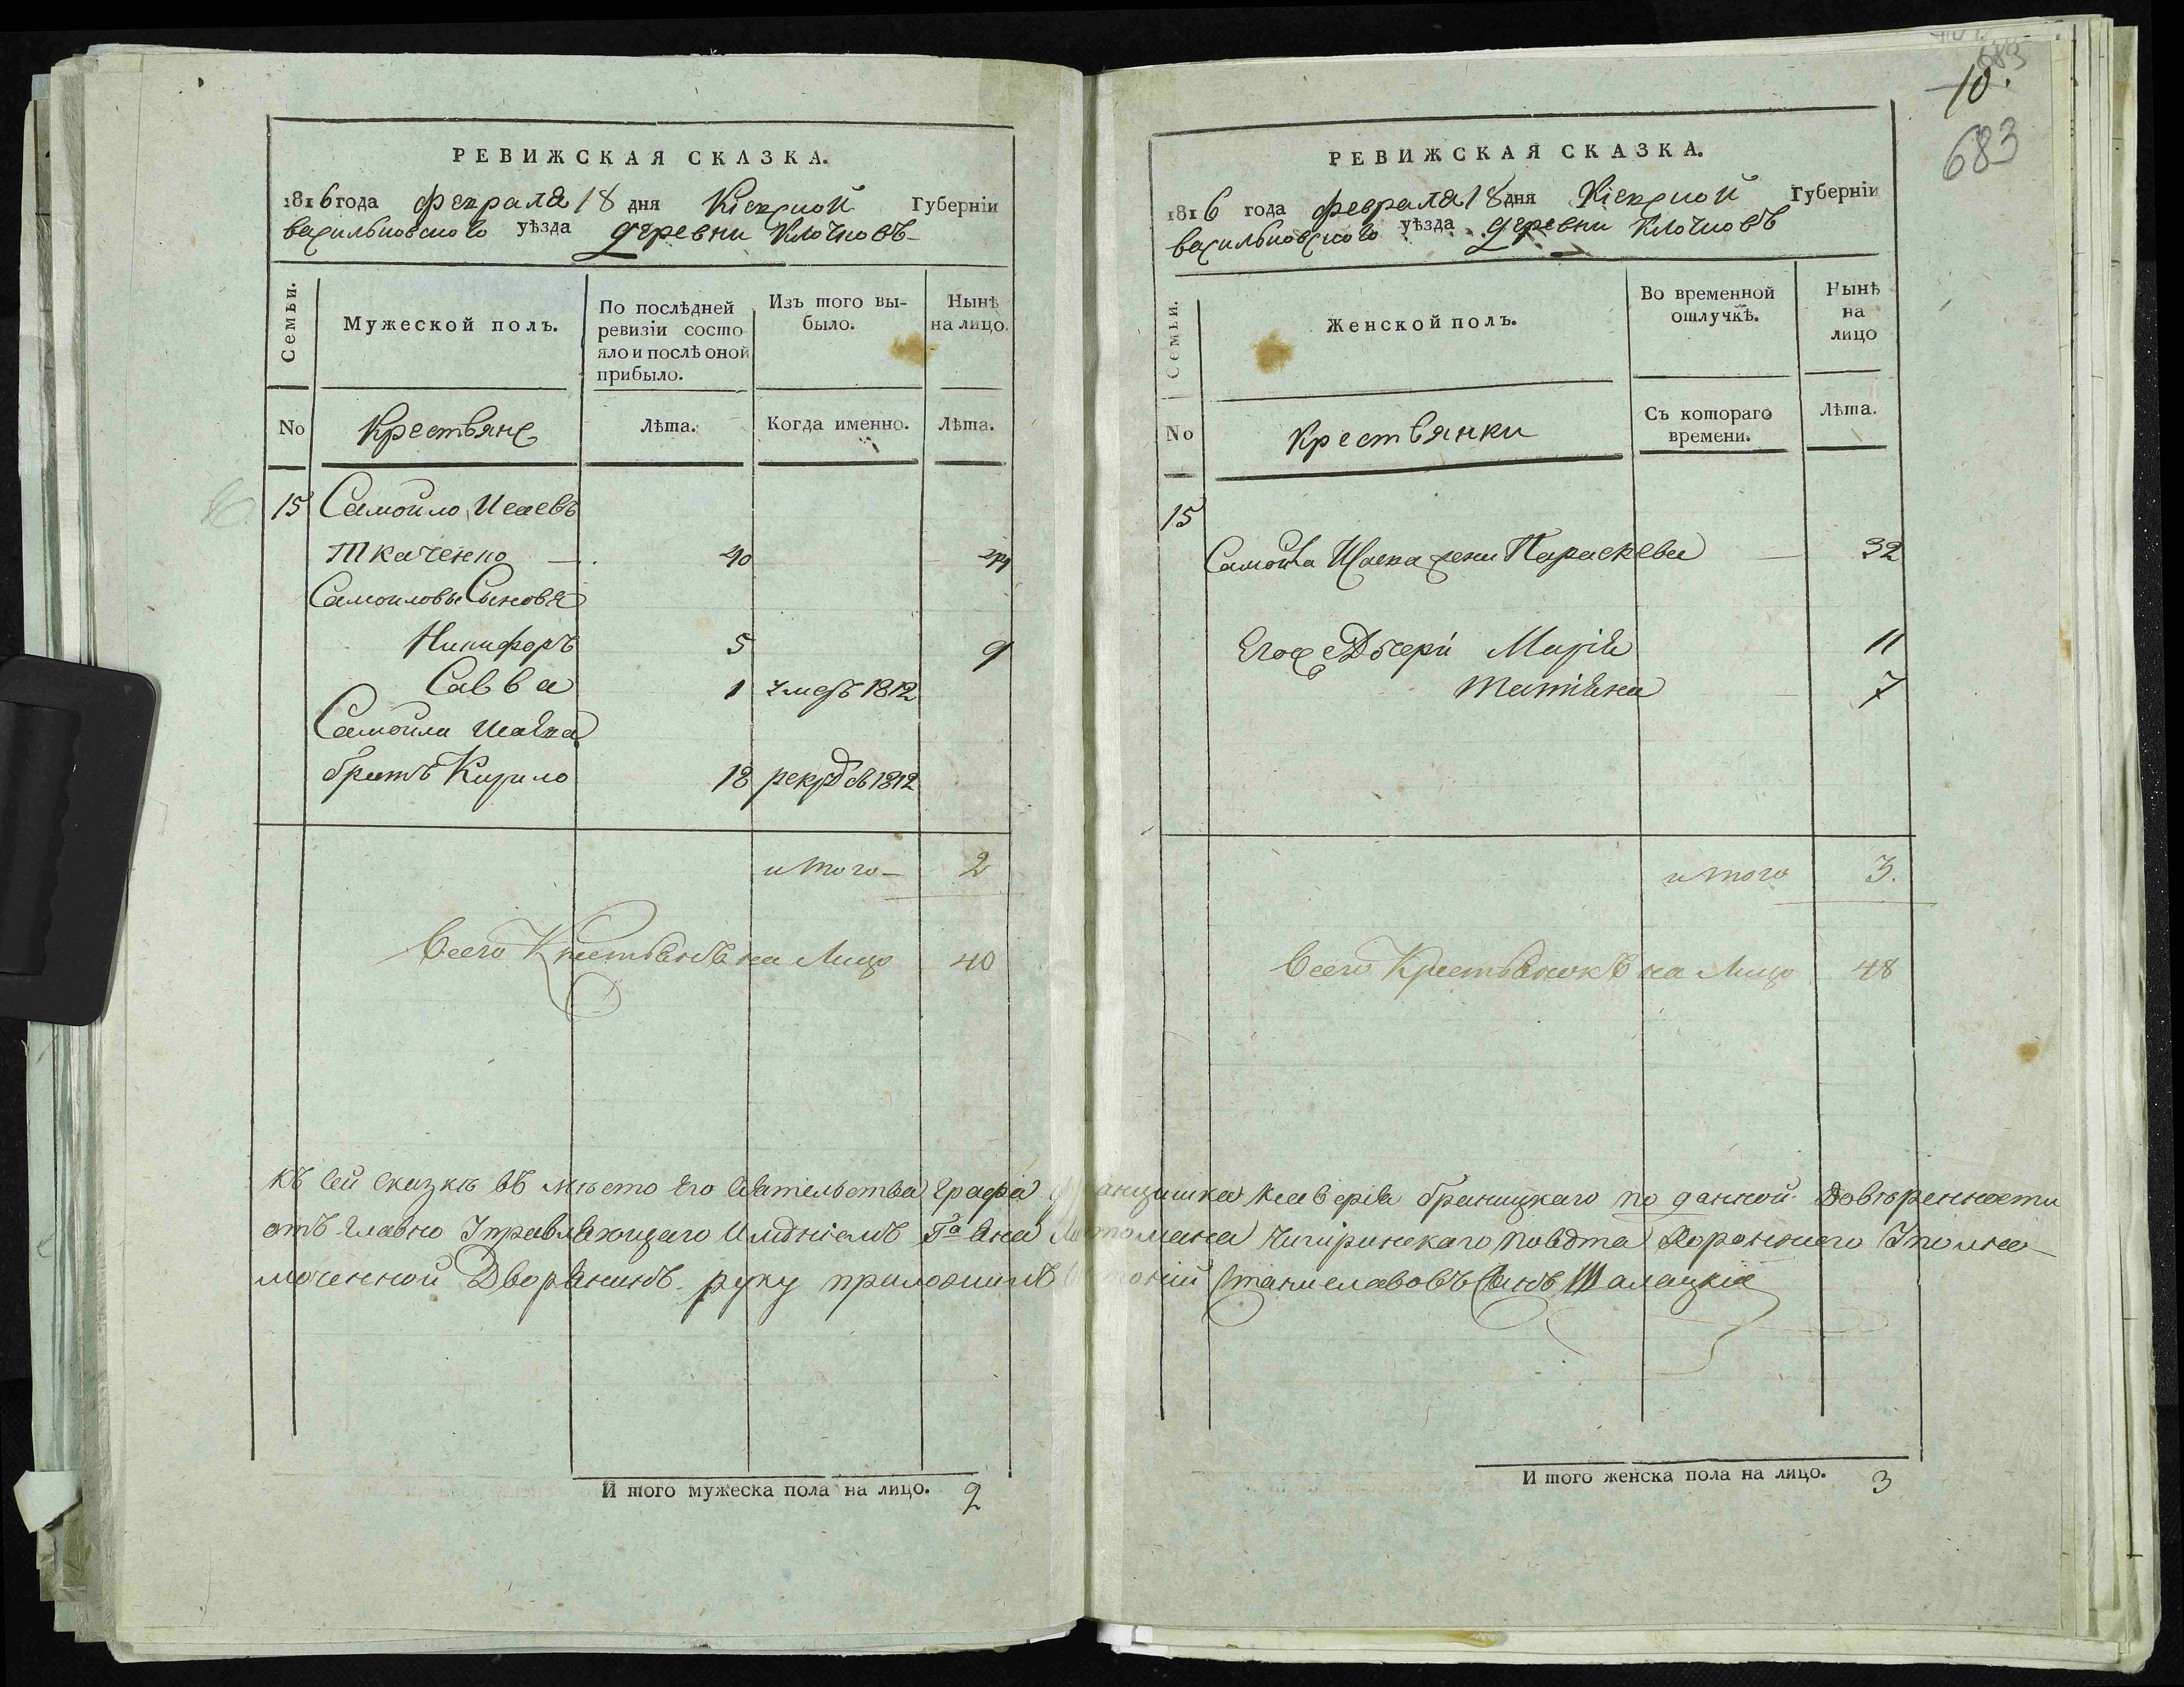 РЕВИЖСКАЯ СКАЗКА.
1816 года февраля 18 дня Кіевской Губерніи
васильковского уѣзда деревни Клочковъ
Семьи.
Мужеской полъ.
По послѣдней ревизіи состояло и послѣ оной прибыло.
Изъ того выбыло.
Нынѣ на лицо.
No
Крестьяне
Лѣта.
Когда именно.
Лѣта.
15 Самойло Исаевъ
Ткаченко — 40 44
Самоиловы Сыновя
Никифоръ 5 9
Савва 1 умеръ 1812
Самойла Исаева
братъ Кирило 18 рекр въ 1812
итого 2
Всего Крестьянъ на Лицо 40
И того мужеска пола на лицо. 2
10.
683
РЕВИЖСКАЯ СКАЗКА.
1816 года февраля 18 дня Кіевской Губерніи
васильковского уѣзда деревни Клочковъ
Семьи.
Женской полъ.
Во временной отлучкѣ.
Нынѣ на лицо
No
Крестьянки
Съ котораго времени.
Лѣта.
15
Самойла Исаева жена Параскева — 32
Егоже Дочери Марія 11
Татіяна 7
итого 3.
Всего Крестьянокъ на Лицо 48
Къ сей сказкѣ въ мѣсто Его Сіательства Графа Францишка Ксаверія Браницкаго по данной Довѣренности
отъ Главно Управляющаго Имѣніемъ Гна Яна Чигиринскаго Повѣта Хоронжего Уполно-
моченной Дворянинъ руку приложилъ Станиславовъ Сынъ
И того женска пола на лицо. 3